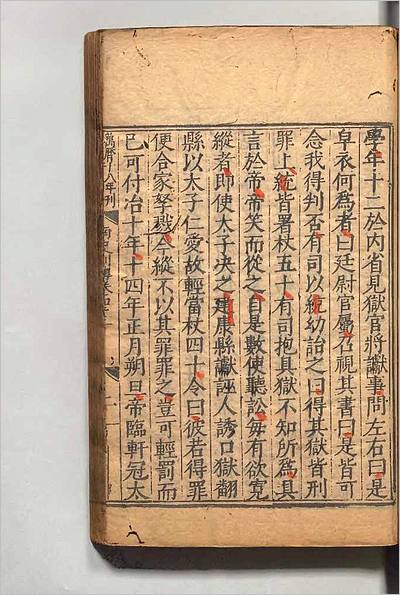 學年十二於內省見獄官將讞事問左右曰是
皁衣何爲者曰廷尉官屬召視其書曰是皆可
念我得判否有司以統幼詒之曰得其獄皆刑
罪上統皆署杖五十有司抱具獄不知所爲具
言於帝帝笑而從之自是數使聽訟每有欲寬
縱者即使太子決之建康縣讞誣人誘口獄翻
縣以太子仁愛故輕當杖四十令曰彼若得罪
便合家孥戮今縱不以其罪罪之豈可輕罰而
已可付治十年十四年正月朔旦帝臨軒冠太
萬曆十八年刊